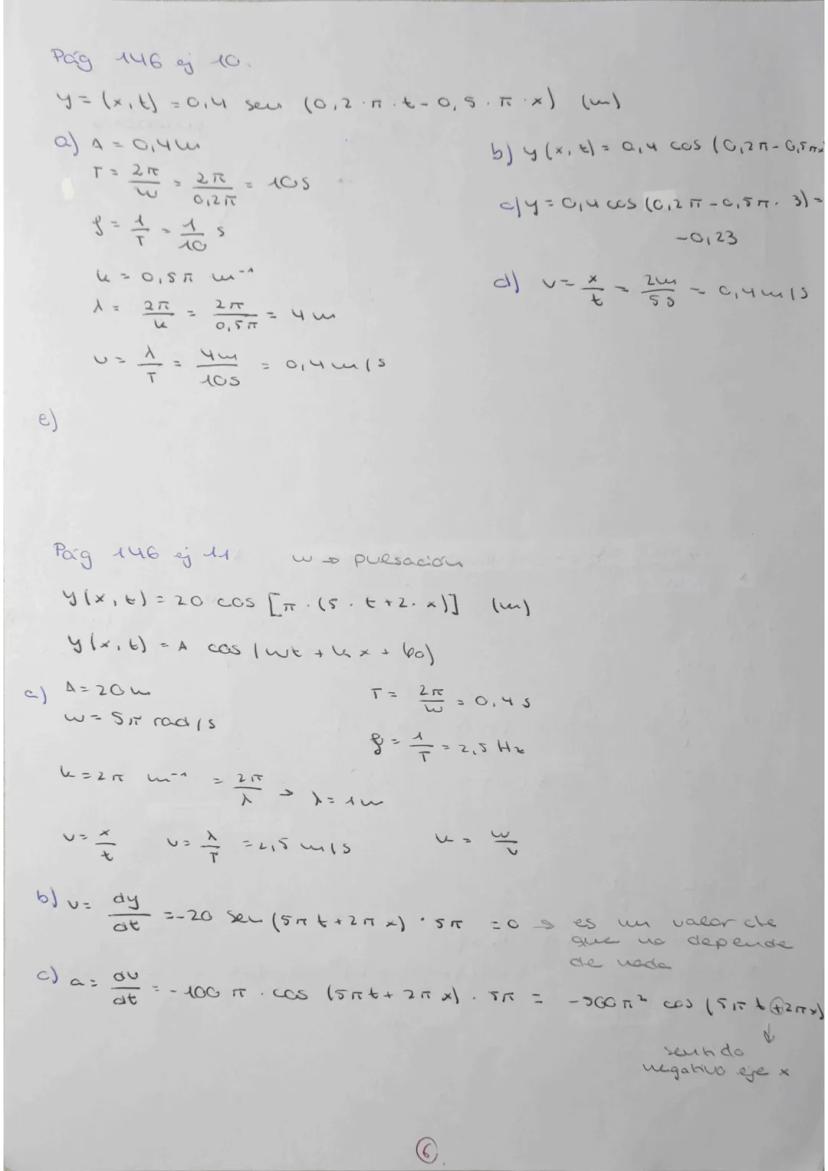 Pág 146 ej 10.
y = (x, t) = 0,4 sen (0,2 · π · t - 0,5 · π · x) (m)
a) A = 0,4 m
T = 2π/w = 2π/0,2π = 10s
f = 1/T = 1/10 s
k = 0,5π m⁻¹
λ = 2π/k = 2π/0,5π = 4 m
v = λ/T = 4m/10s = 0,4 m/s
b) y (x, t) = 0,4 cos (0,2π - 0,5πx
c) y = 0,4 cos (0,2π - 0,5π · 3) =
-0,23
d) v = x/t = 2m/5s = 0,4 m/s
e)
Pág 146 ej 11. w → pulsación
y(x, t) = 20 cos [π · (5 · t + 2 · x)] (m)
y(x, t) = A cos (wt + kx + φo)
a) A = 20 m
w = 5π rad/s
T = 2π/w = 0,4 s
f = 1/T = 2,5 Hz
k = 2π m⁻¹ = 2π/λ → λ = 1m
v = x/t v = λ/T = 2,5 m/s k = w/v
b) v = dy/dt = -20 sen (5πt + 2πx) · 5π = 0 → es un valor de
que no depende
de nada
c) a = dv/dt = -100 π · cos (5πt + 2πx) · 5π = -500π² cos (5πt + 2πx)
↓
sentido
negativo eje x
6